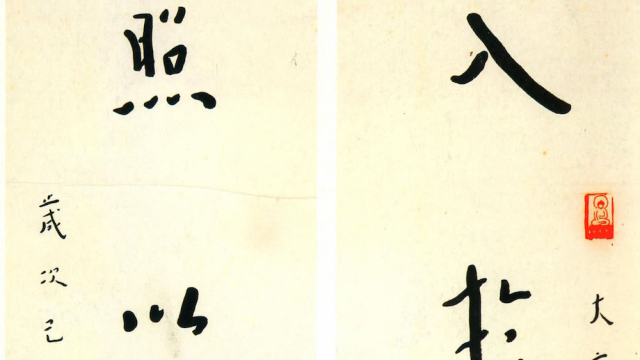 大
入於
照以
歲次己